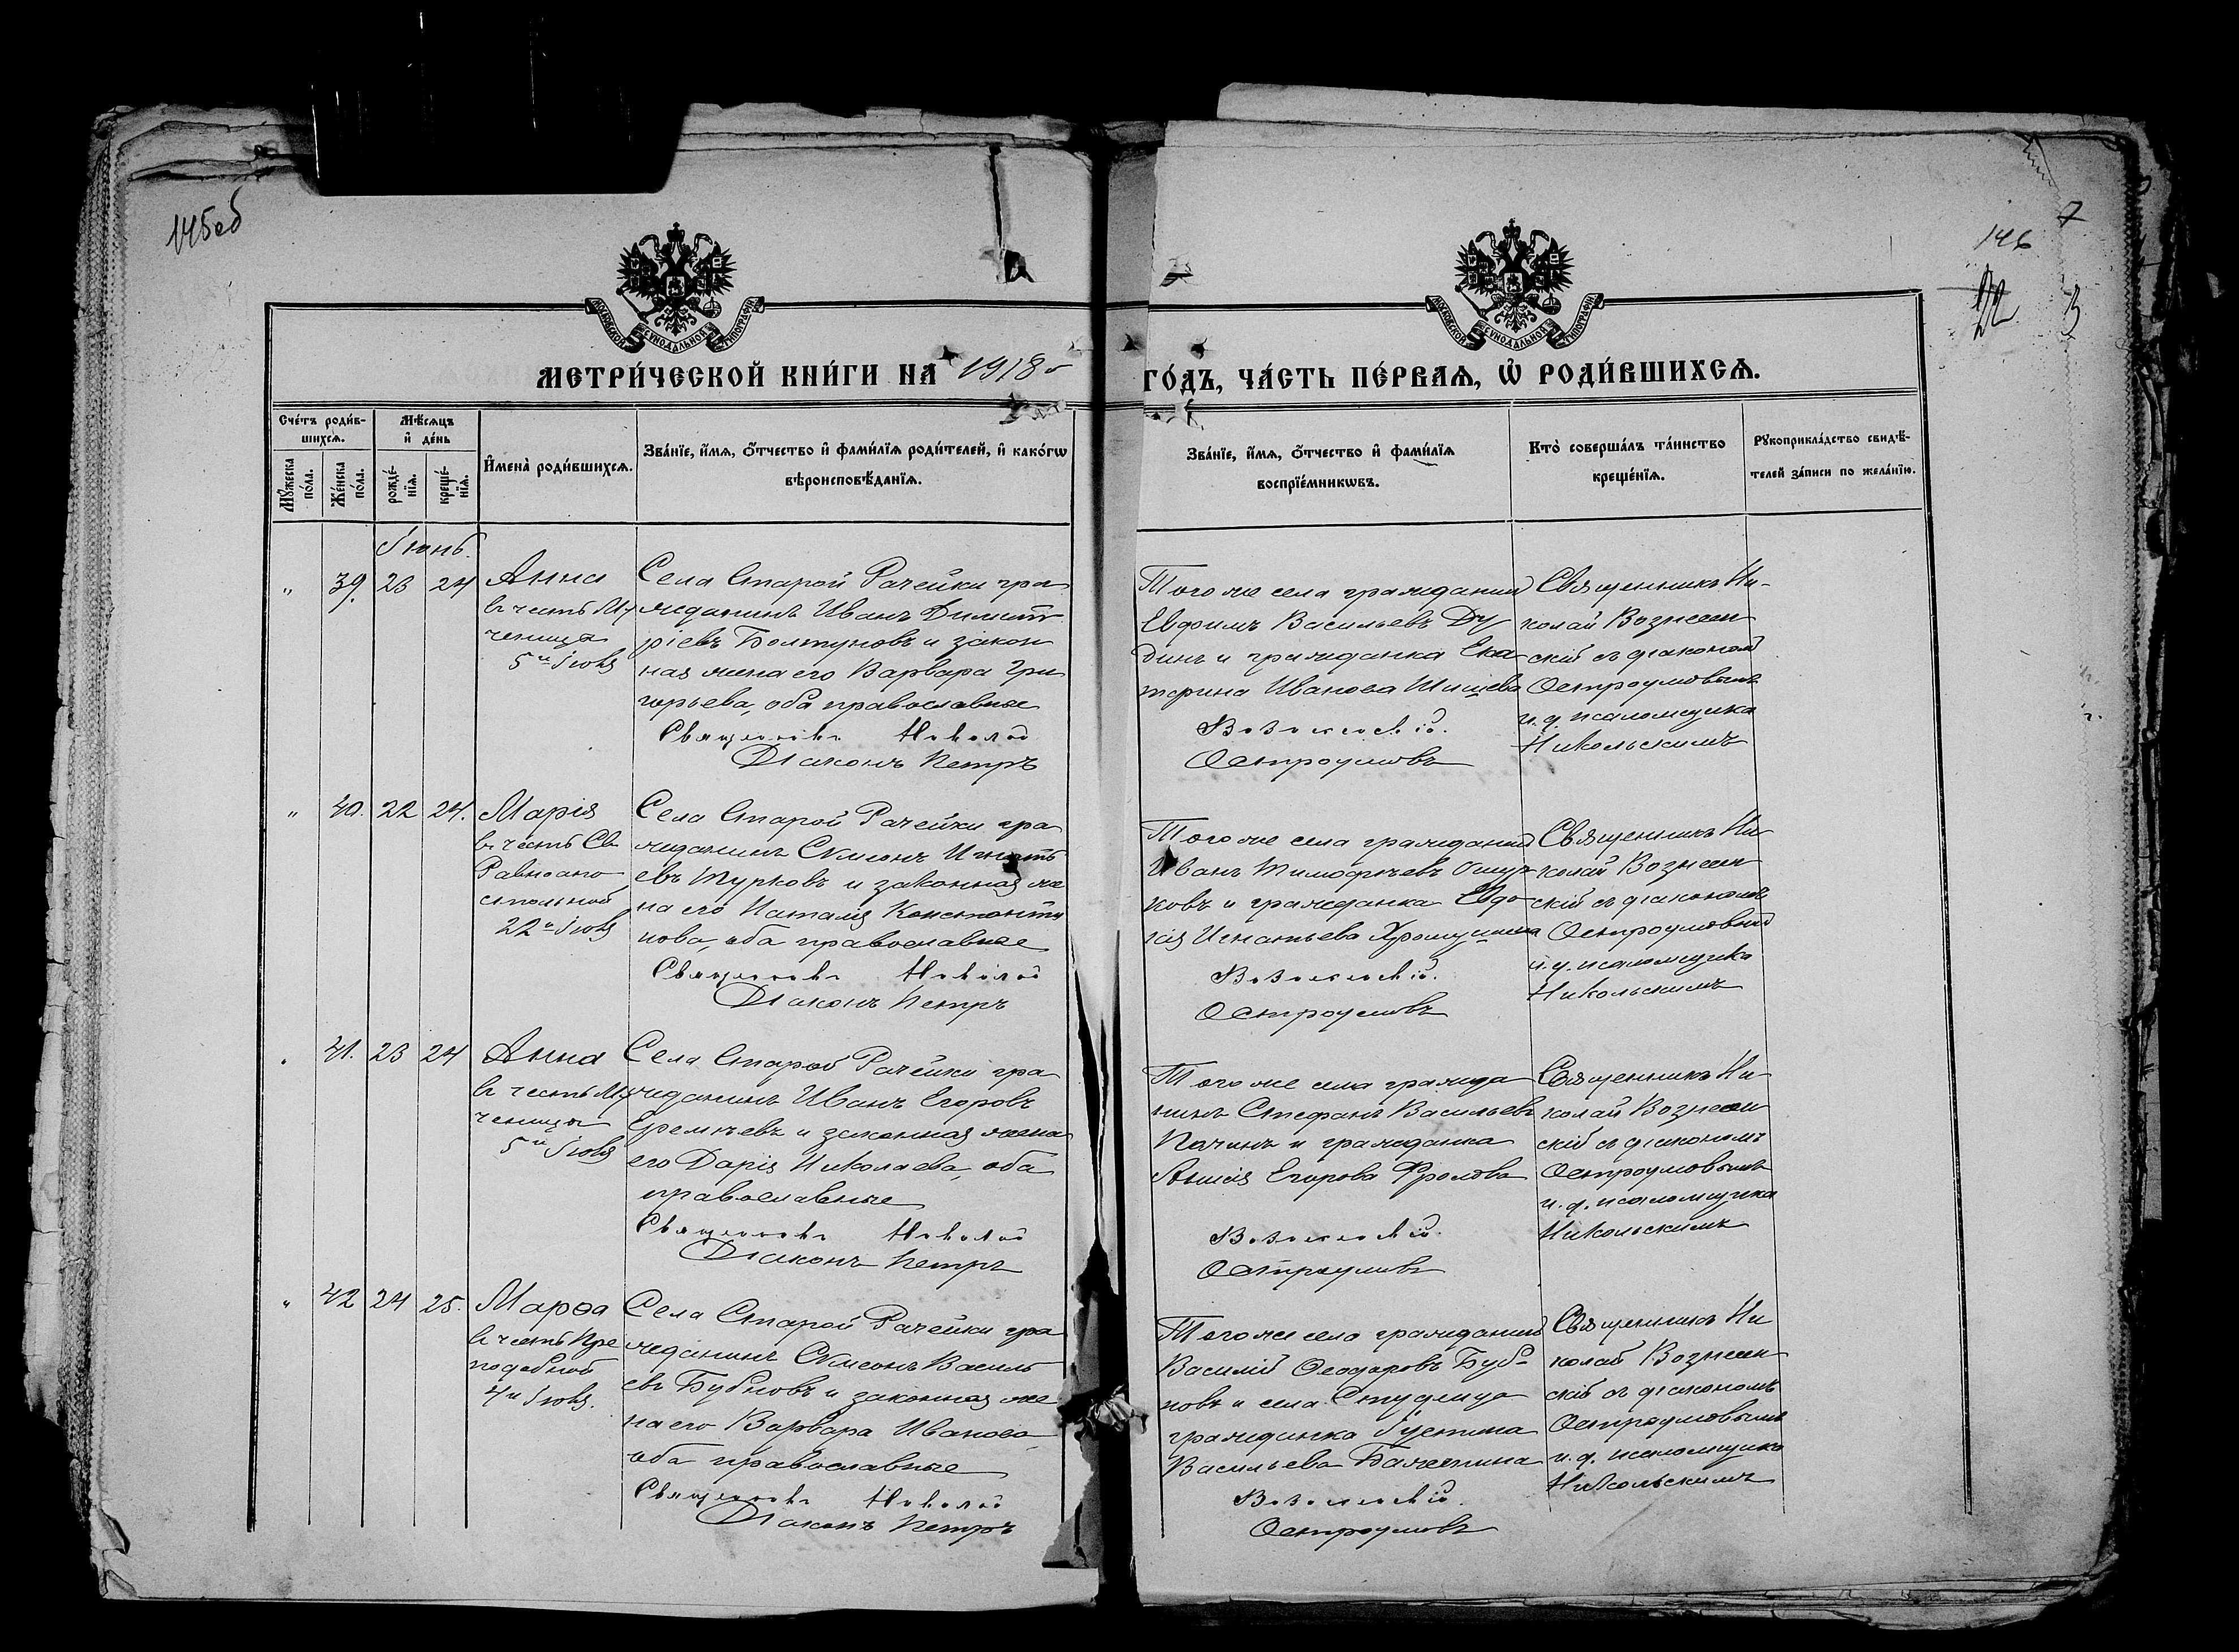 145об
146
7
МОСКОВСКОЙ СѴНОДАЛЬНОЙ ТИПОГРАФІИ
МОСКОВСКОЙ СѴНОДАЛЬНОЙ ТИПОГРАФІИ
МЕТРИ́ЧЕСКОЙ КНИ́ГИ НА 1918 ГО́ДЪ, ЧА́СТЬ ПЕ́РВАѦ, Ѡ҆ РОДИ́ВШИХСѦ.
Сче́тъ роди́в-
шихсѧ.
Мꙋ́жеска по́ла.
Же́нска по́ла.
Мѣ́сѧцъ
и҆ де́нь
рожде́-
нїѧ.
креще́-
нїѧ.
И҆мена̀ роди́вшихсѧ.
Зва́нїе, и҆́мѧ, ѻ҆́тчество и҆ фами́лїѧ роди́телей, и҆ како́гѡ
вѣроисповѣ́данїѧ.
Зва́нїе, и҆́мѧ, ѻ҆́тчество и҆ фами́лїѧ
воспрїе́мникѡвъ.
Кто̀ соверша́лъ та́инство
креще́нїѧ.
Рꙋкоприкла́дство свидѣ́-
телей за́писи по жела́нїю.
Іюнь.
" 39. 23 24
Анна
въ честь Му
ченицы
5го Іюля
Села Старой Рачейки гра
жданинъ Иванъ Димит
ріевъ Болтуновъ и закон
ная жена его Варвара Гри
горьева, оба православные
Священникъ Николай
Діаконъ Петръ
Того же села гражданинъ
Евфимъ Васильевъ Ду
динъ и гражданка Ека
терина Иванова Шишева
Вознесенскій.
Остроумовъ
Священникъ Ни-
колай Вознесен
скій съ діакономъ
Остроумовымъ
и. д. псаломщика
Никольскимъ
" 40. 22 24.
Марія
въ честь Св
Равноапо
стольной
22го Іюля
Села Старой Рачейки гра
жданинъ Сѵмеонъ Игнать
евъ Турковъ и законная же
на его Наталія Константи
нова, оба православные
Священникъ Николай
Діаконъ Петръ
Того же села гражданинъ
Иванъ Тимофѣевъ Ошур
ковъ и гражданка Евдо
кія Игнатьева
Вознесенскій.
Остроумовъ
Священникъ Ни
колай Вознесен
скій съ діакономъ
Остроумовымъ
и. д. псаломщика
Никольскимъ
" 41. 23 24
Анна
въ честь Му
ченицы
5го Іюля
Села Старой Рачейки гра
жданинъ Иванъ Егоровъ
Еремѣевъ и законная жена
его Дарія Николаева, оба
православные
Священникъ Николай
Діаконъ Петръ
Того же села гражда
нинъ Стефанъ Васильевъ
и гражданка
Анисія Егорова Фролова
Вознесенскій.
Остроумовъ
Священникъ Ни-
колай Вознесен
скій съ діакономъ
Остроумовымъ
и. д. псаломщика
Никольскимъ
" 42 24 25.
Марѳа
въ честь Пре
подобной
4го Іюля.
Села Старой Рачейки гра
жданинъ Сѵмеонъ Василь
евъ Бубновъ и законная же
на его Варвара Иванова
оба православные
Священникъ Николай
Діаконъ Петръ
Того же села гражданинъ
Василій Ѳеодоровъ Буб-
новъ и села Студенца
гражданка Іустина
Васильева
Вознесенскій.
Остроумовъ
Священникъ Ни
колай Вознесен
скій съ діакономъ
Остроумовымъ
и. д. псаломщика
Никольскимъ